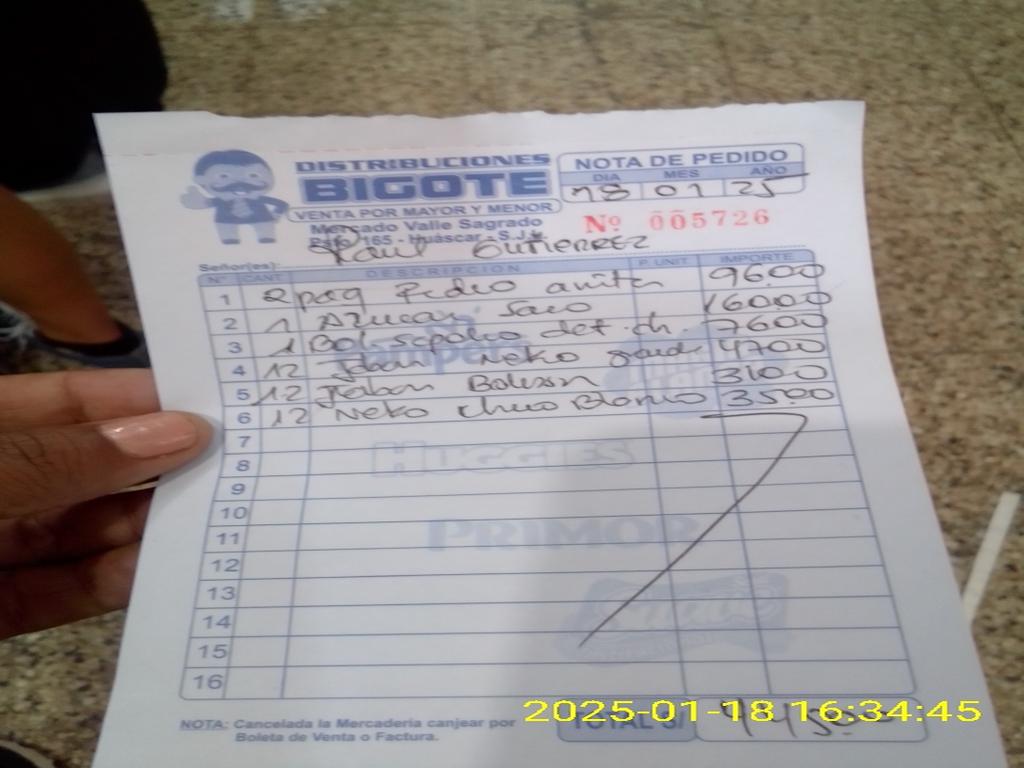 DISTRIBUCIONES
BIGOTE
VENTA POR MAYOR Y MENOR
Mercado Valle Sagrado
165 - Huáscar - S.J.L.
NOTA DE PEDIDO
DIA MES AÑO
18 01 25
Nº 005726
Señor(es): Raul Gutierrez
Nº CANT. DESCRIPCION P. UNIT. IMPORTE
1 2 paq Pedro anita 96.00
2 1 Azucar Saco 160.00
3 1 Bol. sapolio det. ch. 76.00
4 12 Jabon Neko grand. 47.00
5 12 Jabon Bolivar 31.00
6 12 Neko chico Blanco 35.00
7
8 HUGGIES
9
10
11 PRIMOR
12
13
14 Suave
15
16
NOTA: Cancelada la Mercadería canjear por
Boleta de Venta o Factura.
TOTAL S/
2025-01-18 16:34:45